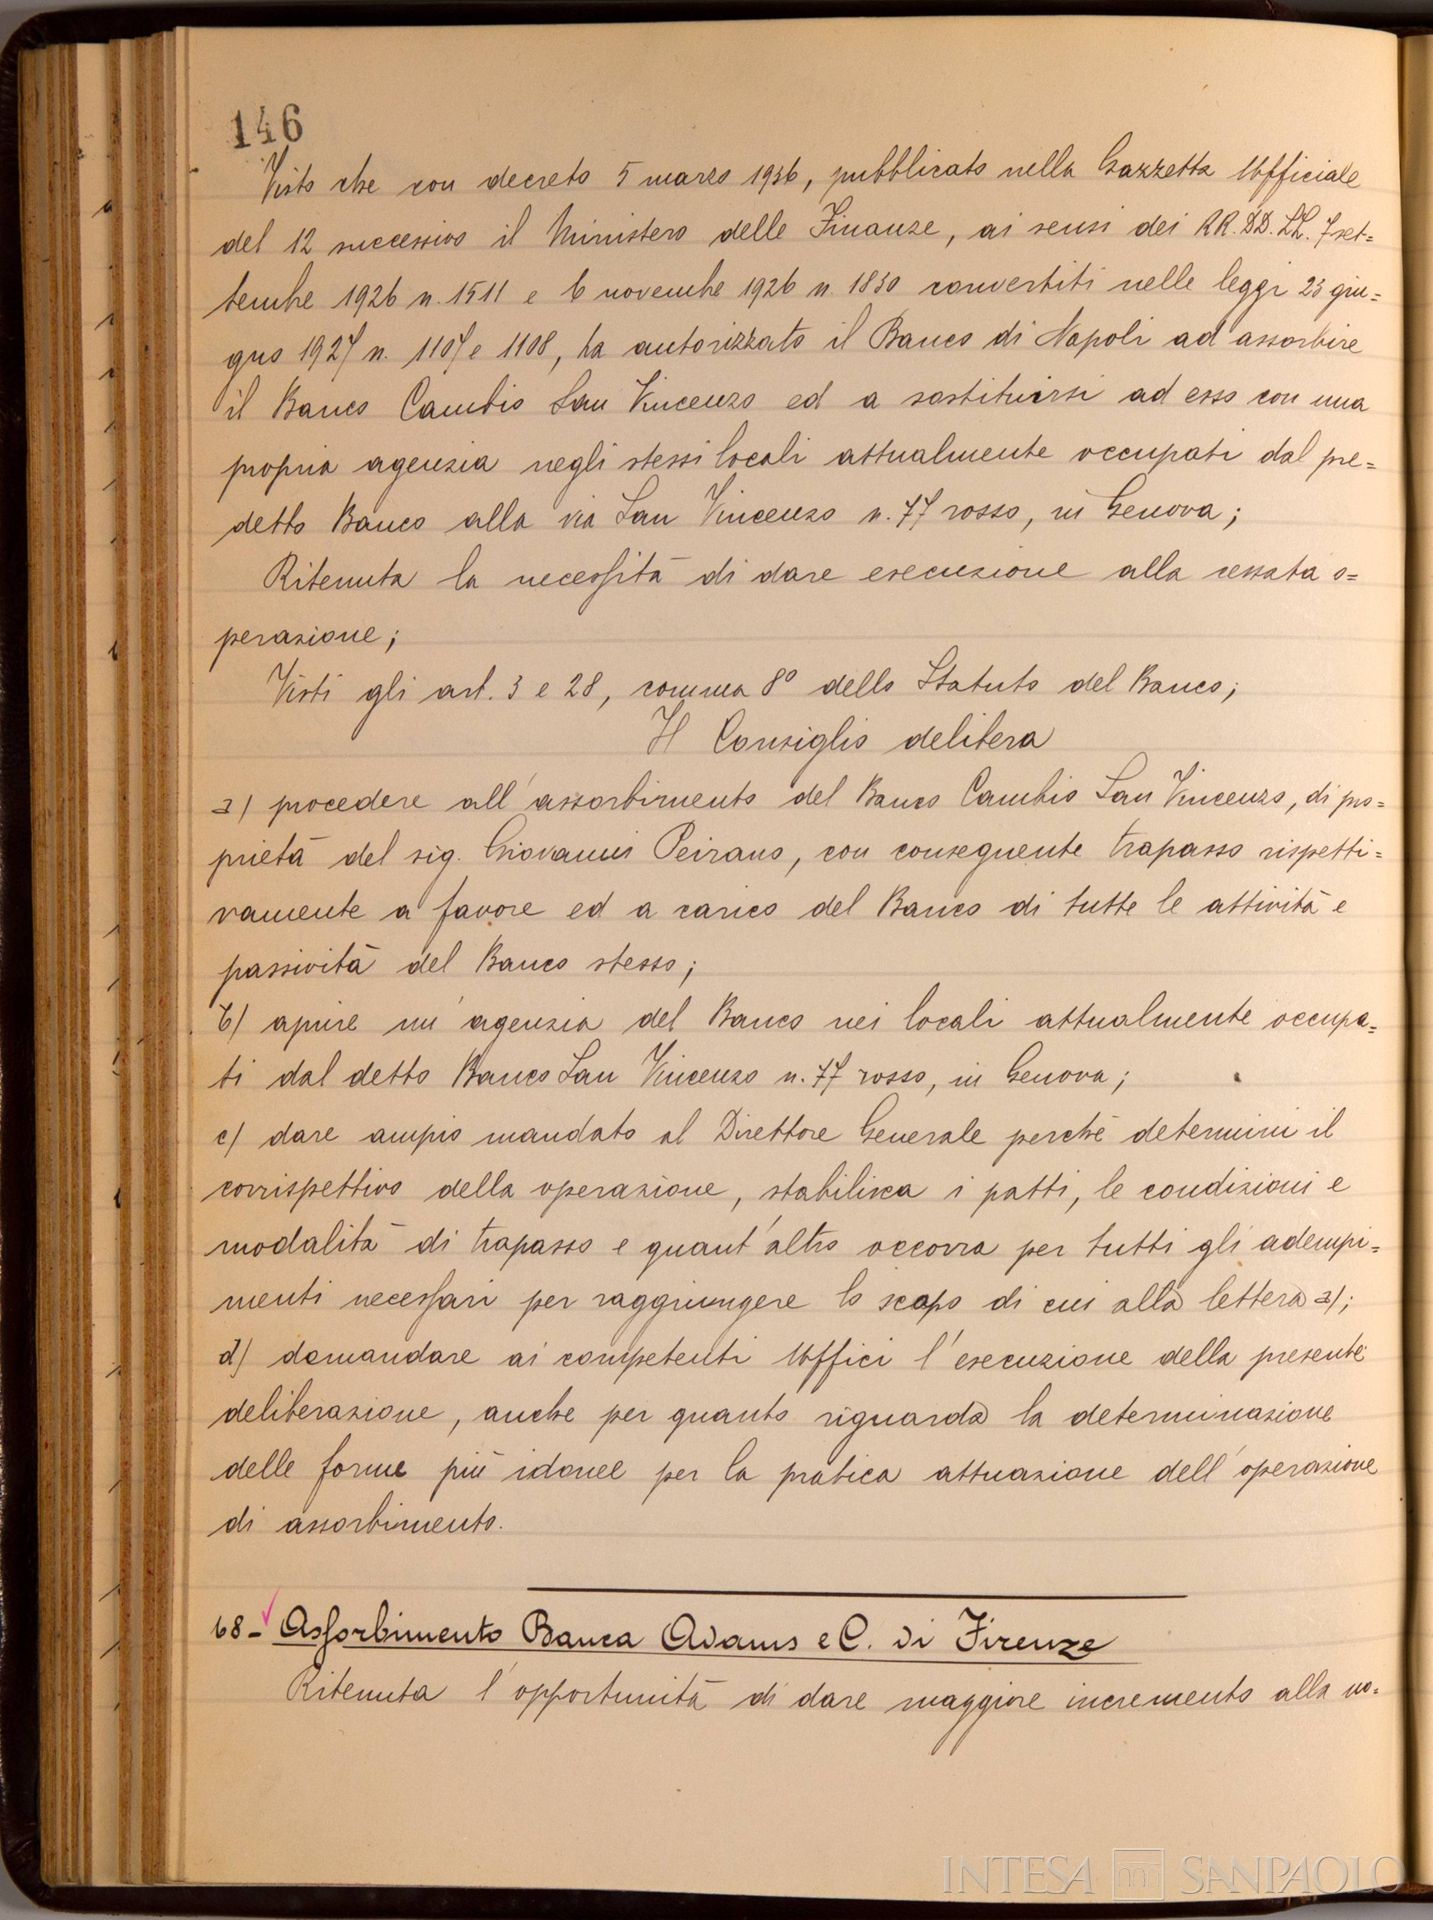 146
Visto che con decreto 5 marzo 1936, pubblicato nella Gazzetta Ufficiale
del 12 successivo il Ministero delle Finanze, ai sensi dei RR. DD. LL. 7 set=
tembre 1926 n. 1511 e 6 novembre 1926 n. 1830 convertiti nelle leggi 23 giu=
gno 1927 n. 1107 e 1108, ha autorizzato il Banco di Napoli ad assorbire
il Banco Cambio San Vincenzo ed a sostituirsi ad esso con una
propria agenzia negli stessi locali attualmente occupati dal pre=
detto Banco alla via San Vincenzo n. 77 rosso, in Genova;
Ritenuta la necessità di dare esecuzione alla cessata o=
perazione;
Visti gli art. 3 e 28, comma 8° dello Statuto del Banco;
Il Consiglio delibera
a) procedere all'assorbimento del Banco Cambio San Vincenzo, di pro=
prietà del sig. Giovanni Peirano, con conseguente trapasso rispetti=
vamente a favore ed a carico del Banco di tutte le attività e
passività del Banco stesso;
b) aprire un'agenzia del Banco nei locali attualmente occupa=
ti dal detto Banco San Vincenzo n. 77 rosso, in Genova;
c) dare ampio mandato al Direttore Generale perché determini il
corrispettivo della operazione, stabilisca i patti, le condizioni e
modalità di trapasso e quant'altro occorra per tutti gli adempi=
menti necessari per raggiungere lo scopo di cui alla lettera a);
d) domandare ai competenti Uffici l'esecuzione della presente
deliberazione, anche per quanto riguarda la determinazione
delle forme più idonee per la pratica attuazione dell'operazione
di assorbimento.
68 - Assorbimento Banca Adams e C. di Firenze
Ritenuta l'opportunità di dare maggiore incremento alla no=
INTESA SANPAOLO